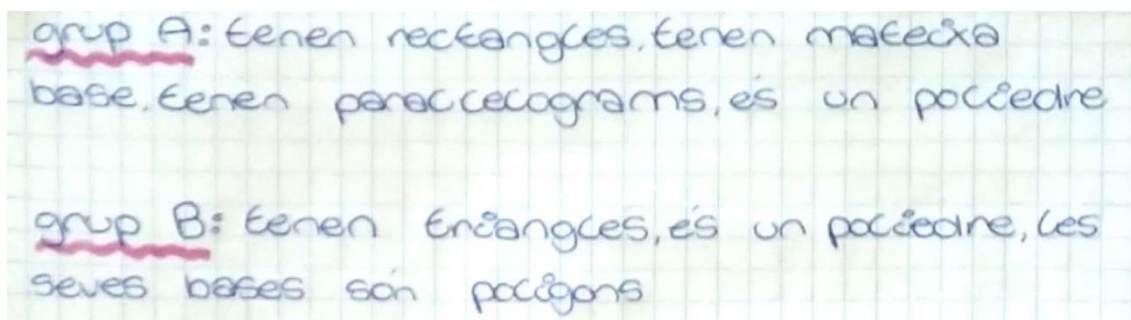 grup A: tenen rectangles, tenen mateixa
base, tenen paral·lelograms, és un políedre
grup B: tenen triangles, és un políedre, les
seves bases són polígons